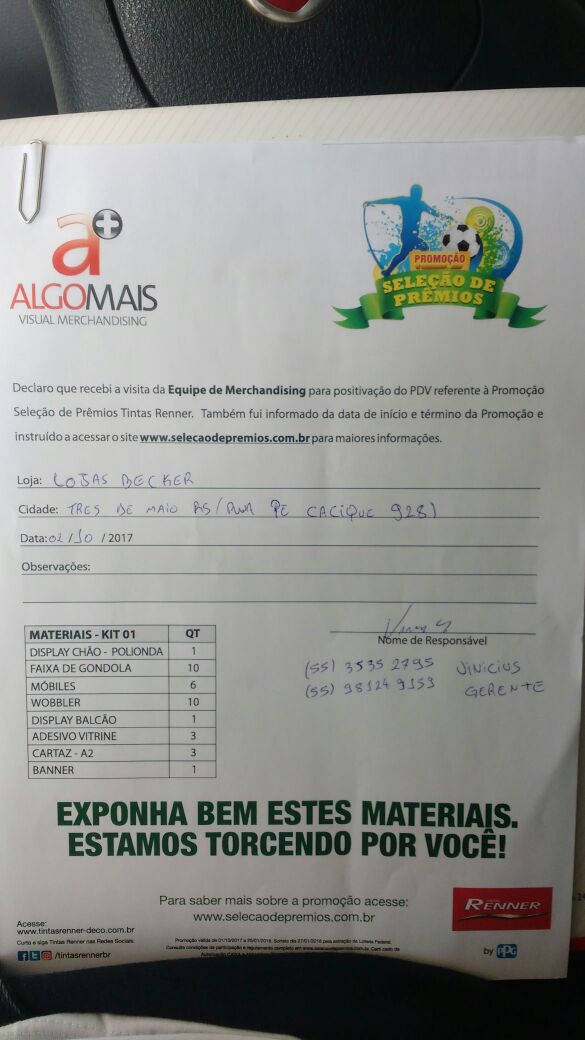 a+
ALGOMAIS
VISUAL MERCHANDISING
PROMOÇÃO
SELEÇÃO DE
PRÊMIOS
Declaro que recebi a visita da Equipe de Merchandising para positivação do PDV referente à Promoção
Seleção de Prêmios Tintas Renner. Também fui informado da data de início e término da Promoção e
instruído a acessar o site www.selecaodepremios.com.br para maiores informações.
Loja: LOJAS BECKER
Cidade: TRES DE MAIO RS/RUA PE CACIQUE 928)
Data: 02/10 / 2017
Observações:
Nome de Responsável
(55) 3535 2795 VINICIUS
(55) 98124 9153 GERENTE
MATERIAIS - KIT 01 QT
DISPLAY CHÃO - POLIONDA 1
FAIXA DE GONDOLA 10
MÓBILES 6
WOBBLER 10
DISPLAY BALCÃO 1
ADESIVO VITRINE 3
CARTAZ - A2 3
BANNER 1
EXPONHA BEM ESTES MATERIAIS.
ESTAMOS TORCENDO POR VOCÊ!
Para saber mais sobre a promoção acesse:
www.selecaodepremios.com.br
RENNER
by PPG
Acesse:
www.tintasrenner-deco.com.br
Curta e siga Tintas Renner nas Redes Sociais:
/tintasrennerbr
Promoção válida de 01/10/2017 a 20/01/2018. Sorteio dia 27/01/2018 pela extração da Loteria Federal.
Consulte condições de participação e regulamento completo em www.selecaodepremios.com.br. Cert. Caixa de